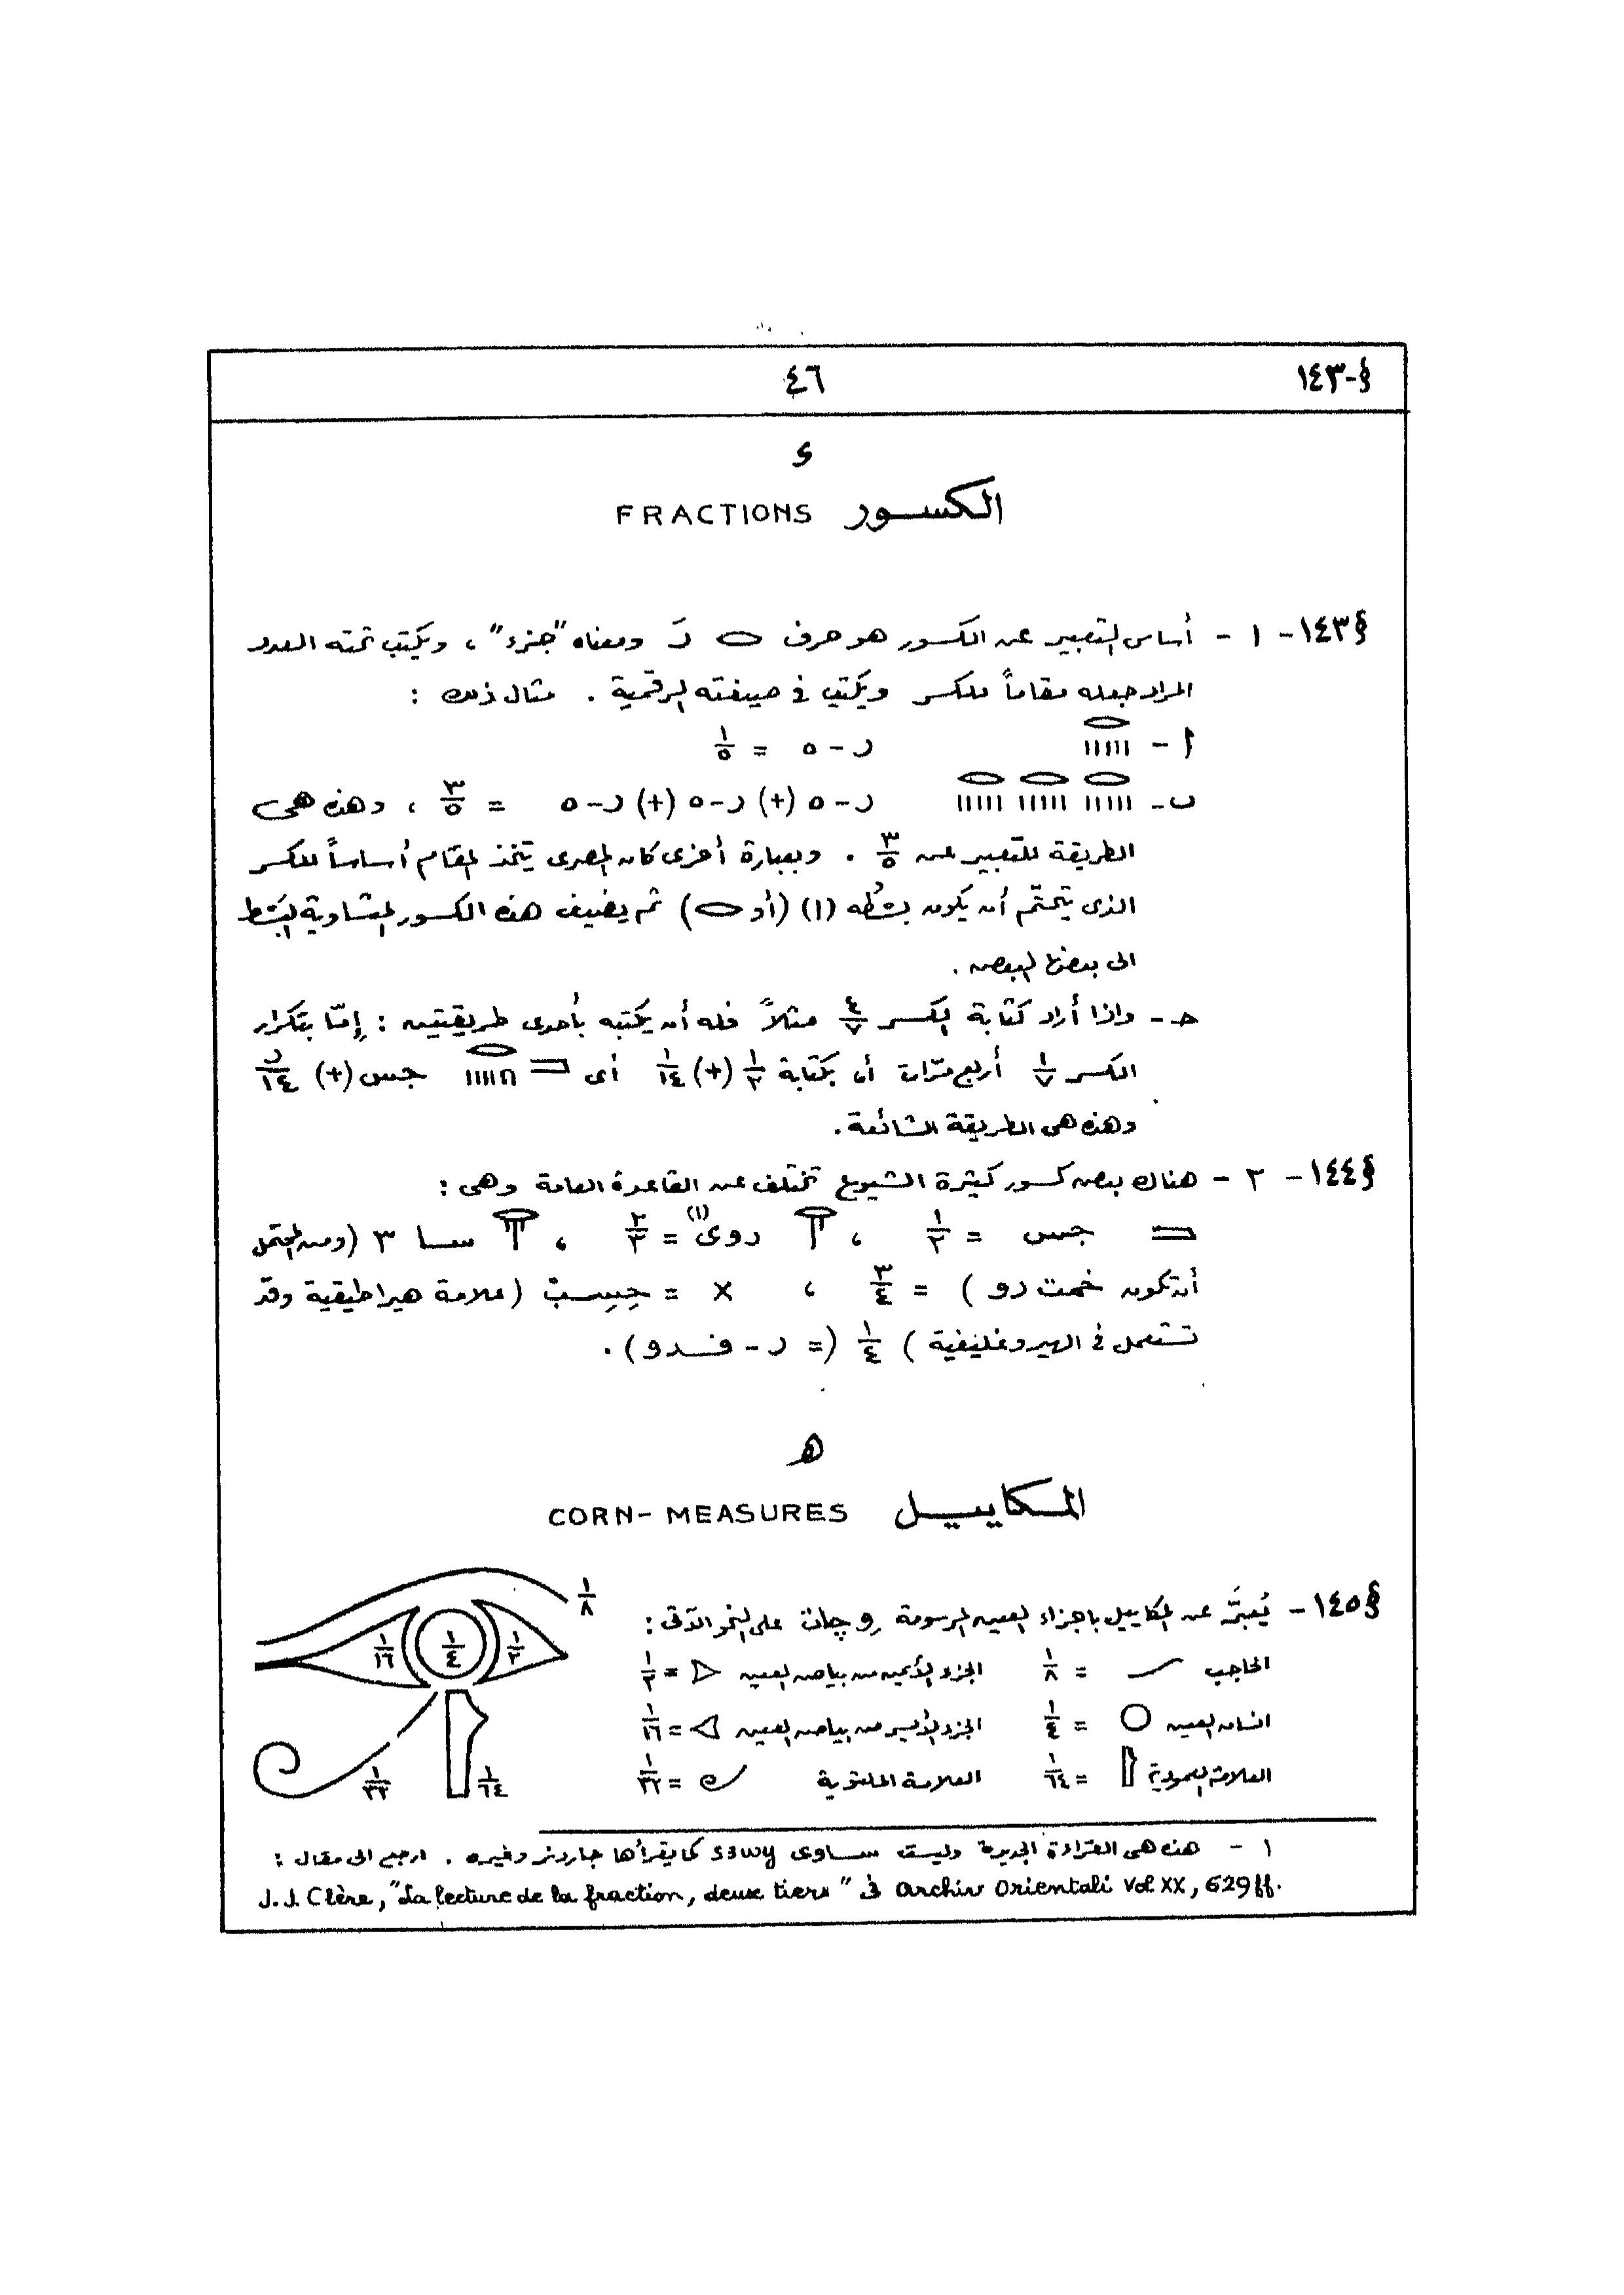 §-١٤٣ ٤٦
د
الكسور FRACTIONS
§١٤٣- ١ - أساس التعبير عن الكسور هو حرف رَ ومعناه "جزء" ، ويكتب تحته العدد
المراد جعله مقاماً للكسر ويكتب فى صيغته الرقمية . مثال ذلك :
أ - ر - ٥ = ١/٥
ب - ر - ٥ (+) ر - ٥ (+) ر - ٥ = ٣/٥ ، وهذه هى
الطريقة للتعبير عن ٣/٥ . وبعبارة أخرى كان المصرى يتخذ المقام أساساً للكسر
الذى يتحتّم أن يكون بسْطُه (١) (أو ) ثم يضيف هذه الكسور المتساوية البَسْط
الى بعضها البعض .
حـ - واذا أراد كتابة الكسر ٤/٧ مثلاً فله أن يكتبه بأحدى طريقتين : إمّا بتكرار
الكسر ١/٧ أربع مرّات أو بكتابة ١/٢ (+) ١/١٤ أى جس (+) ر/١٤
وهذه هى الطريقة الشائعة .
§١٤٤- ٢ - هناك بعض كسور كثيرة الشيوع تختلف عن القاعدة العامة وهى :
جس = ١/٢ ، روى(١) = ٢/٣ ، سا ٣ (ومن المحتمل
أن تكون خمت رو ) = ٣/٤ ، × = حِسِب (علامة هيراطيقية وقد
تستعمل فى الهيروغليفية ) ١/٤ (= ر - فدو) .
هـ
المكاييل CORN-MEASURES
§١٤٥- يُعبَّر عن المكاييل باجزاء العين المرسومة وچات على النحو الآتى :
الحاجب = ١/٨ الجزء الأيمن من بياض العين = ١/٢
انسان العين = ١/٤ الجزء الأيسر من بياض العين = ١/١٦
العلامة العمودية = ١/٦٤ العلامة الملتوية = ١/٣٢
١/٨
١/١٦ ١/٤ ١/٢
١/٣٢ ١/٦٤
١ - هذه هى القراءة الجديدة وليست ساوى s3wy كما يقرأها جاردنر وغيره . ارجع الى مقال :
J. J. Clère, "La lecture de la fraction, deux tiers" فى Archiv Orientali Vol XX, 629ff.